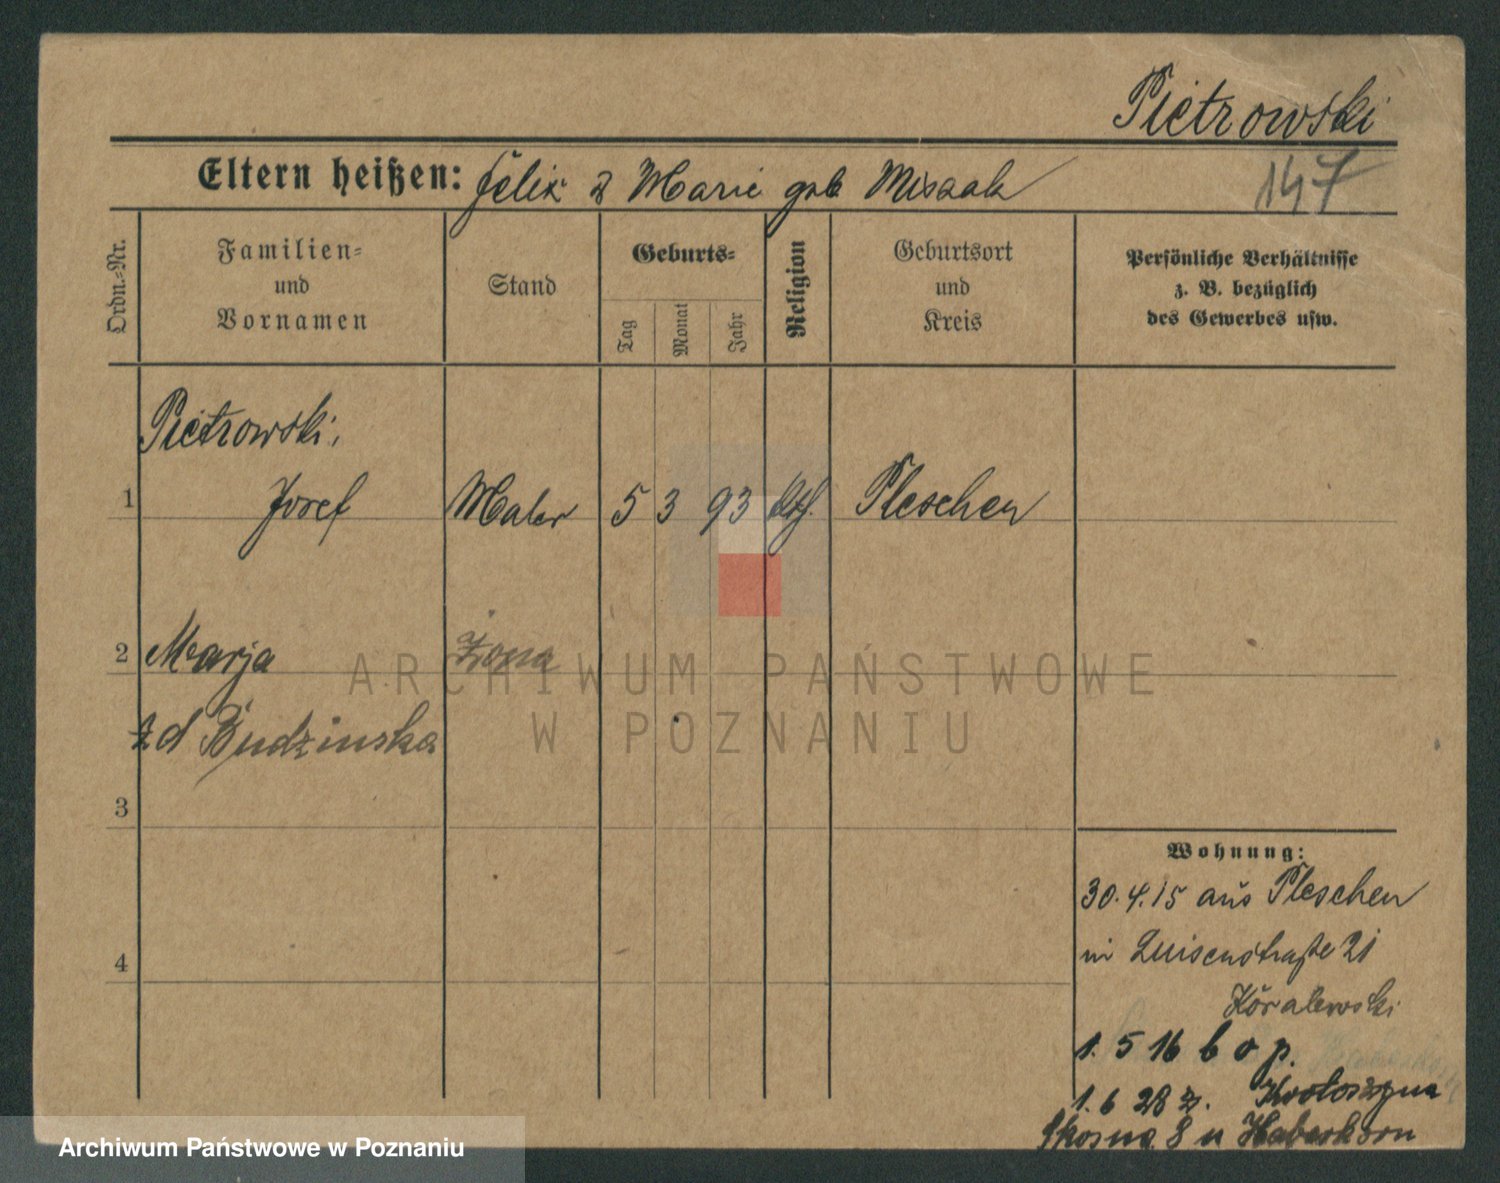 Pietrowski
147
Eltern heißen: Felix u Marie geb Misaak
Ordn.-Nr.
Familien-
und
Vornamen
Stand
Geburts-
Tag
Monat
Jahr
Religion
Geburtsort
und
Kreis
Persönliche Verhältnisse
z. B. bezüglich
des Gewerbes usw.
Pietrowski,
1 Josef Maler 5 3 93 kath. Pleschen
2 Marja Żona
z d Budzinska
3
4
Wohnung:
30.4.15 aus Pleschen
in Luisenstraße 21
Koralewski
1. 5 16 b o p.
1. 6 28 z. Krotoszyna
8 u Haberkorn
ARCHIWUM PAŃSTWOWE
W POZNANIU
Archiwum Państwowe w Poznaniu